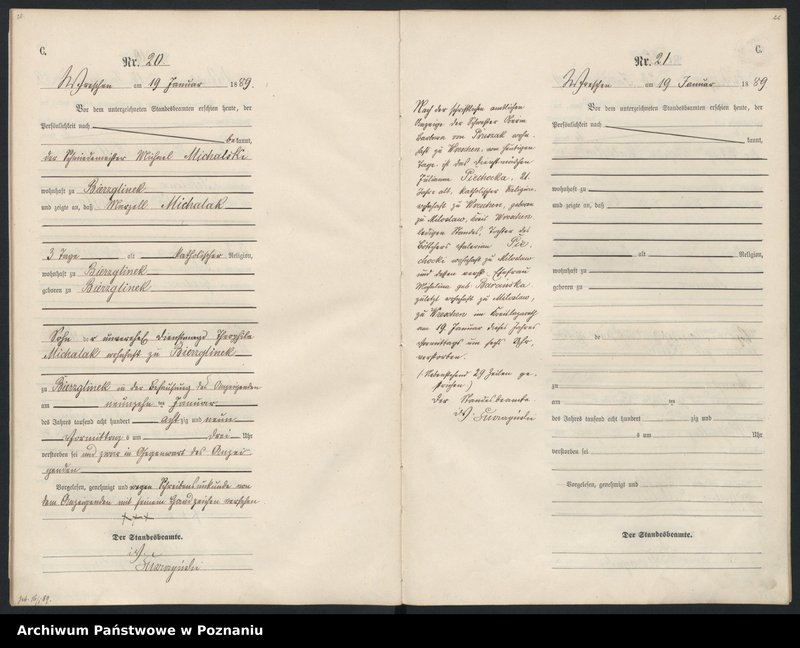 C.
Nr. 20
Wreschen am 19 Januar 1889.
Vor dem unterzeichneten Standesbeamten erschien heute, der
Persönlichkeit nach
bekannt,
der Schmiedemeister Michael Michalski
wohnhaft zu Bierzglinek
und zeigte an, daß Marzell Michalak
3 Tage alt katholischer Religion,
wohnhaft zu Bierzglinek
geboren zu Bierzglinek
Sohn der unverehel. Dienstmagd Theophila
Michalak wohnhaft zu Bierzglinek
zu Bierzglinek in der Behausung des Anzeigenden
am neunzehn ten Januar
des Jahres tausend acht hundert acht zig und neun
Vormittag s um drei Uhr
verstorben sei und zwar in Gegenwart des Anzei-
genden
Vorgelesen, genehmigt und wegen Schreibensunkunde von
dem Anzeigenden mit seinem Handzeichen versehen
+++
Der Standesbeamte.
geb. 16/1 89.
22
C.
Nr. 21
Wreschen am 19 Januar 1889
Nach der schriftlichen amtlichen
Anzeige der Schwester Oberin
Barbara von wohn-
haft zu Wreschen, vom heutigen
Tage, ist das Dienstmädchen
Julianna Piechocka, 21
Jahre alt, katholischer Religion,
wohnhaft zu Wreschen, geboren
zu Miloslaw, Kreis Wreschen
ledigen Standes, Tochter des
Böttchers Valerian Pie-
chocki wohnhaft zu Miloslaw
und dessen verst. Ehefrau
Michalina geb. Baranska
zuletzt wohnhaft zu Miloslaw,
zu Wreschen im Kreislazareth
am 19. Januar dieses Jahres
Vormittags um sechs Uhr,
verstorben.
(Nebenstehend 29 Zeilen ge-
strichen)
Der Standesbeamte
Vor dem unterzeichneten Standesbeamten erschien heute, der
Persönlichkeit nach
kannt,
wohnhaft zu
und zeigte an, daß
alt Religion,
wohnhaft zu
geboren zu
de
zu
am ten
des Jahres tausend acht hundert zig und
s um Uhr
verstorben sei
Vorgelesen, genehmigt und
Der Standesbeamte.
Archiwum Państwowe w Poznaniu